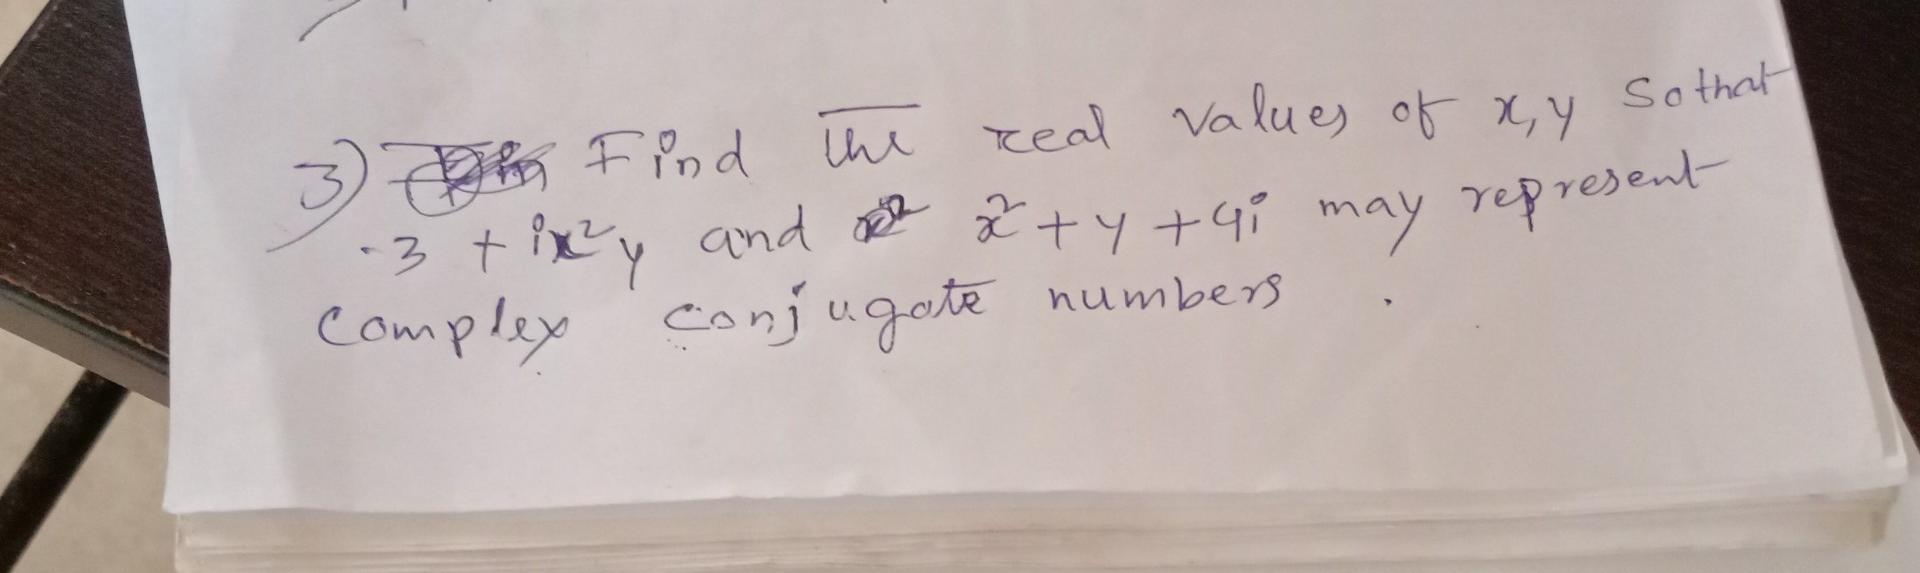 3) Find the real values of x, y so that
-3 + ix²y and x² + y + 4i may represent
complex conjugate numbers.